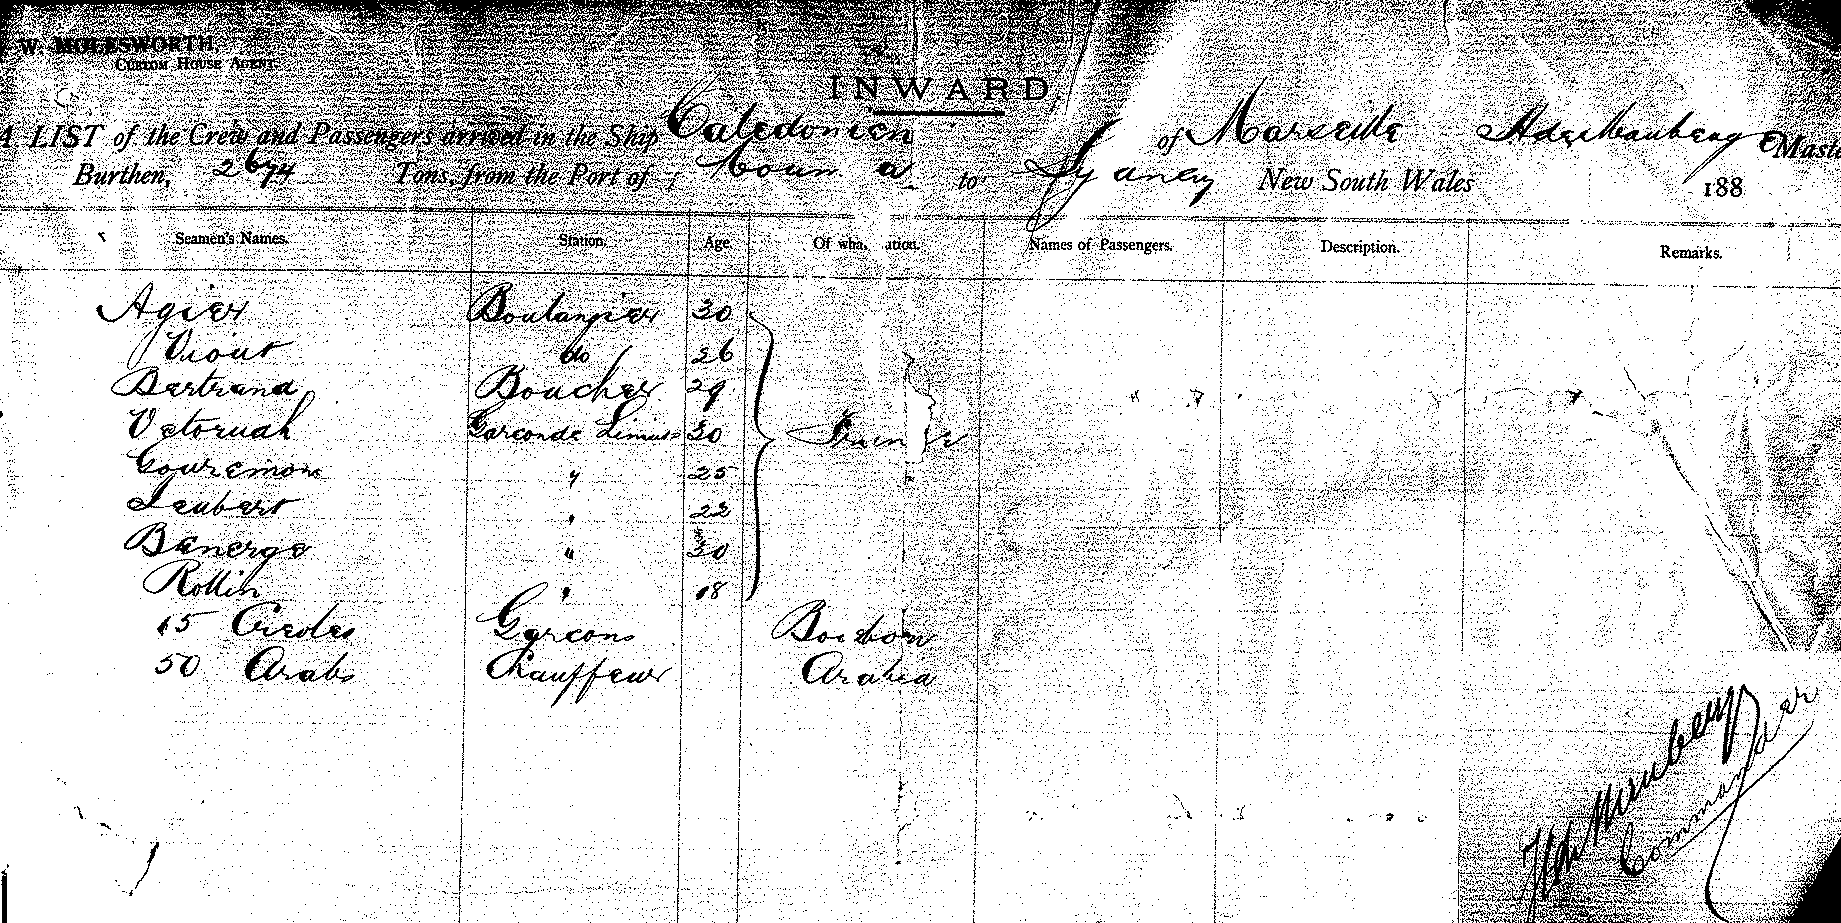 W. MOLESWORTH
CUSTOM HOUSE AGENT.
INWARD.
A LIST of the Crew and Passengers arrived in the Ship Caledonien of Marseille Master
Burthen, 2674 Tons, from the Port of Noumea to Sydney New South Wales 188
Seamen's Names. Station. Age. Of what Nation. Names of Passengers. Description. Remarks.
Agier Boulangier 30
Viout do 26
Bertrand Boucher 29
Garconde 30
" 25
Laubert " 22
" 30
Rollin " 18
France
15 Creoles Garcons Bourbon
50 Arabs Chauffeur Arabia
Commander